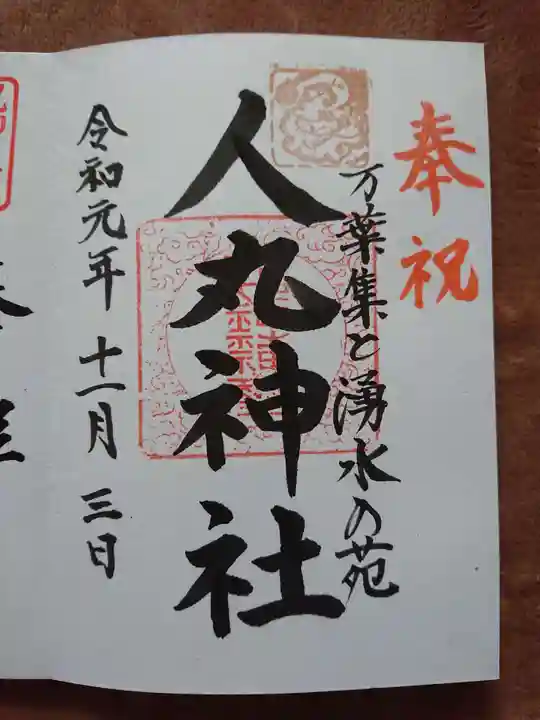 奉祝
万葉集と湧水の苑
人丸神社
令和元年 十一月 三日